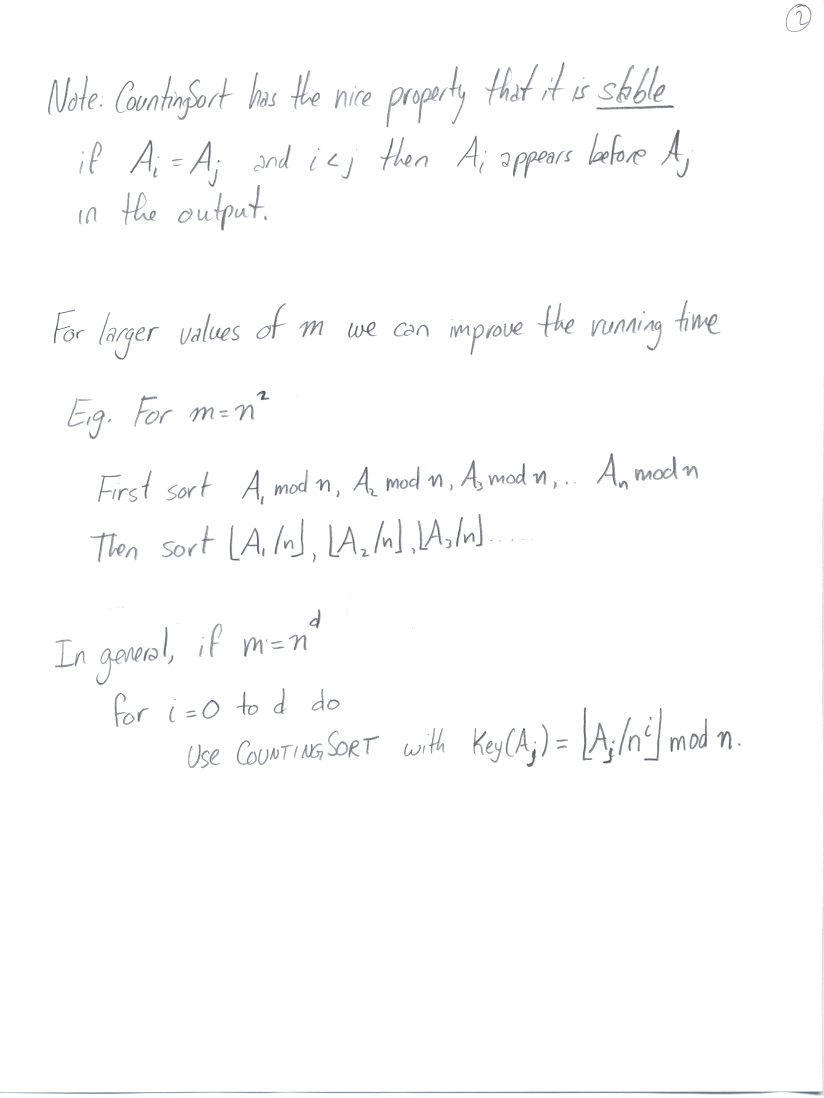 2
Note: CountingSort has the nice property that it is stable
if A_i = A_j and i < j then A_i appears before A_j
in the output.
For larger values of m we can improve the running time
E.g. For m = n²
First sort A₁ mod n, A₂ mod n, A₃ mod n, .. Aₙ mod n
Then sort ⌊A₁/n⌋, ⌊A₂/n⌋, ⌊A₃/n⌋.....
In general, if m = n^d
for i = 0 to d do
Use COUNTINGSORT with Key(A_j) = ⌊A_j/n^i⌋ mod n.